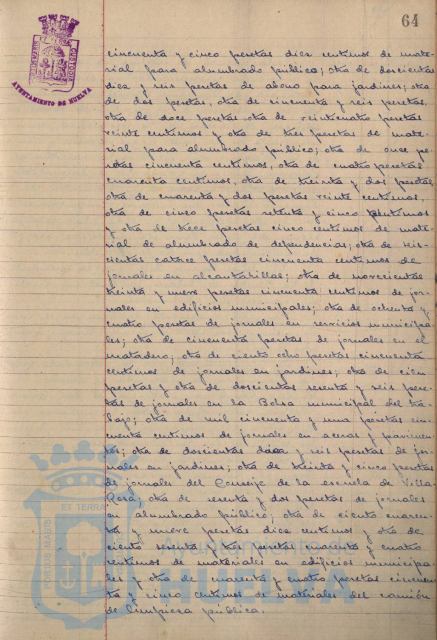 64
AYUNTAMIENTO DE HUELVA
cincuenta y cinco pesetas diez centimos de mate-
rial para alumbrado público; otra de doscientas
diez y seis pesetas de abono para jardines; otra
de dos pesetas, otra de cincuenta y seis pesetas,
otra de doce pesetas otra de veinticuatro pesetas
veinte centimos y otra de tres pesetas de mate-
rial para alumbrado público; otra de once pe-
setas cincuenta centimos, otra de cuatro pesetas
cuarenta centimos, otra de treinta y dos pesetas
otra de cuarenta y dos pesetas veinte centimos,
otra de cinco pesetas setenta y cinco centimos
y otra de trece pesetas cinco centimos de mate-
rial de alumbrado de dependencias; otra de seis-
cientas catorce pesetas cincuenta centimos de
jornales en alcantarillas; otra de novecientas
treinta y nueve pesetas cincuenta centimos de jor-
nales en edificios municipales; otra de ochenta y
cuatro pesetas de jornales en servicios municipa-
les; otra de cincuenta pesetas de jornales en el
matadero; otra de ciento ocho pesetas cincuenta
centimos de jornales en jardines; otra de cien
pesetas y otra de doscientas sesenta y seis pese-
tas de jornales en la Bolsa municipal del tra-
bajo; otra de mil cincuenta y una pesetas cin-
cuenta centimos de jornales en aceras y pavimen-
tos; otra de doscientas diez y seis pesetas de jor-
nales en jardines; otra de treinta y cinco pesetas
de jornales del Conserje de la escuela de Villa
Rosa; otra de sesenta y dos pesetas de jornales
en alumbrado público; otra de ciento cuaren-
ta y nueve pesetas diez centimos y otra de
ciento sesenta y tres pesetas cuarenta y cuatro
centimos de materiales en edificios municipa-
les y otra de cuarenta y cuatro pesetas cincuen-
ta y cinco centimos de materiales del camión
de limpieza pública.
ET TERRA
Ayuntamiento de
HUELVA